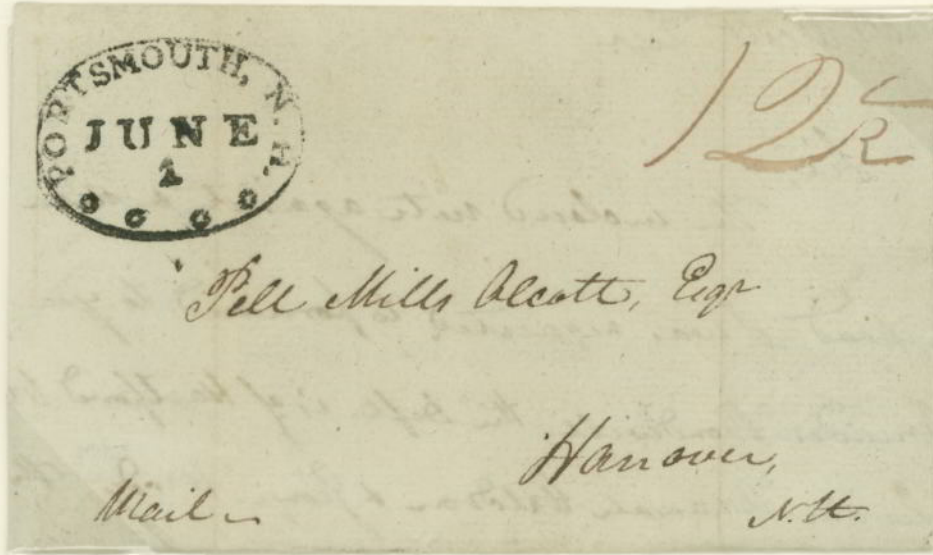 PORTSMOUTH, N. H.
JUNE
1
12½
Pell Mills Olcott, Esqr
Hanover,
N. H.
Mail